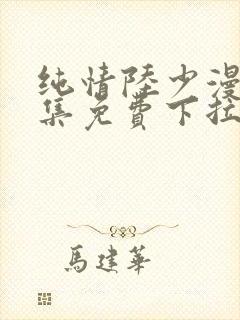 纯情陸少漫
集免費下拉
馬建華